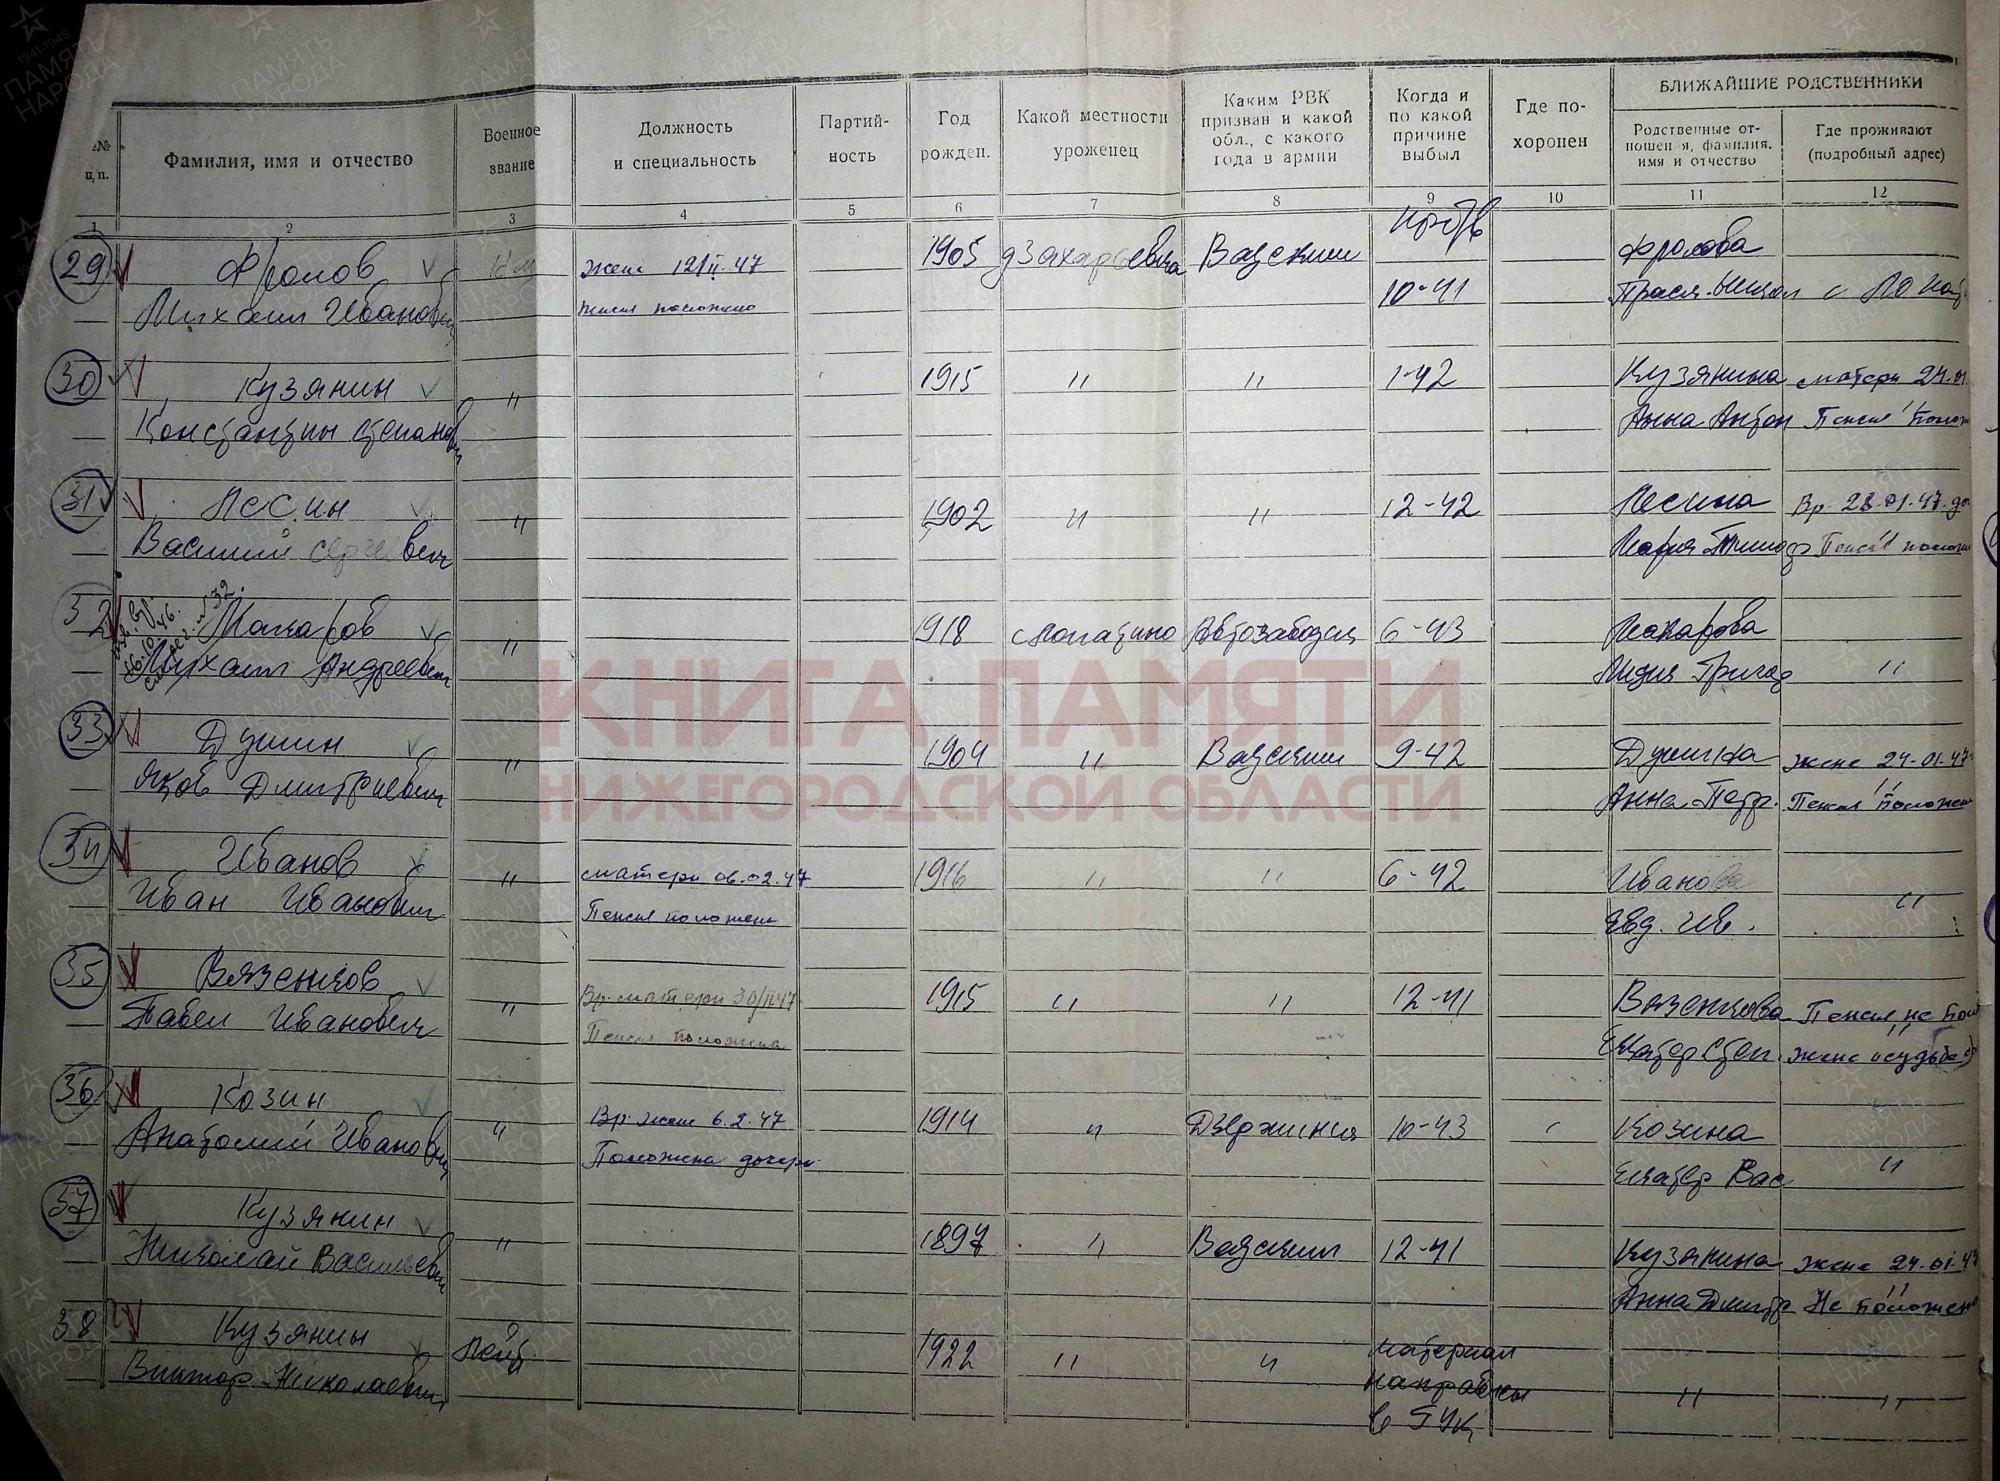 БЛИЖАЙШИЕ РОДСТВЕННИКИ
№ п/п. Фамилия, имя и отчество Военное звание Должность и специальность Партийность Год рожден. Какой местности уроженец Каким РВК призван и какой обл., с какого года в армии Когда и по какой причине выбыл Где похоронен Родственные отношен я, фамилия, имя и отчество Где проживают (подробный адрес)
1 2 3 4 5 6 7 8 9 10 11 12
29 Фролов жене 12/II-47 1905 Фролова
Михаил Иванович пенсия положено 10-41
30 Кузянин " 1915 " " 1-42 Кузянина матери 24.01.
Константин Степанович Анна Антон Пенсия полож
31 Лесин " 1902 " " 12-42 Лесина Вр. 28.01.47
Василий Сергеевич Пенсия полож
32 Макаров " 1918 Автозаводск 6-43 Макарова
Михаил Андреевич Лидия Григор "
КНИГА ПАМЯТИ
33 Душин " 1904 " 9-42 Душина жене 24-01-47
Яков Дмитриевич Анна Петр. Пенсия положен
НИЖЕГОРОДСКОЙ ОБЛАСТИ
34 Иванов " матери 06.02.47 1916 " " 6-42 Иванова
Иван Иванович Пенсия положена Евд. Ив. "
35 Вязенков " Вр. матери 30/II 47 1915 " " 12-41 Вязенкова Пенсия не пол
Павел Иванович Пенсия положена Екатер Степ. жене
36 Козин " Вр. жене 6.2.47 1914 " Дзержинск 10-43 Козина
Анатолий Иванович Положена дочери Екатер Вас "
37 Кузянин " 1897 " 12-41 Кузянина жене 24-01-47
Николай Васильевич Анна Дмитр Не положено
38 Кузянин Лейт. 1922 " " материал
Виктор Николаевич направлен " "
в ГУК
ПАМЯТЬ НАРОДА
1941-1945